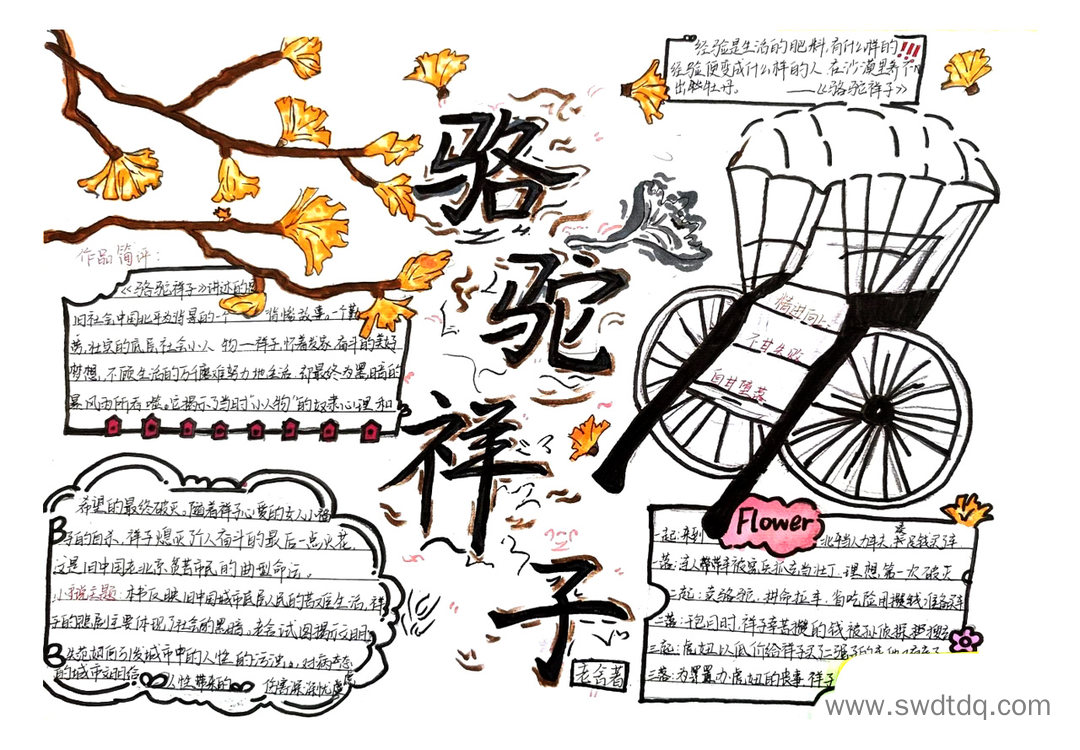 经验是生活的肥料,有什么样的!!!
经验便变成什么样的人,在沙漠里养不
出牡丹。 ——《骆驼祥子》
骆驼祥子
老舍著
作品简评:
《骆驼祥子》讲述的
旧社会中国北平为背景的一个 故事。一个勤
劳,壮实的底层社会小人物一祥子,怀着发家、奋斗的美好
梦想,不顾生活的万千磨难努力地生活,却最终为黑暗的
暴风雨所吞噬。它揭示了当时"小人物"的奴隶心理和
横进向上
不甘失败
自甘堕落
希望的最终破灭。随着祥子心爱的女人小福
子的自杀,祥子熄灭了个人奋斗的最后一点火花,
这是旧中国老北京贫苦市民的典型命运。
小说主题:本书反映旧中国城市底层人民的苦难生活,祥
子的悲剧主要体现了社会的黑暗。老舍试图揭示文明
城市中的人性的
的城市文明给 人性带来的 伤害深深忧虑
Flower
一起:来到 北平当人力车夫,
一落: 连人带车被宪兵抓去当壮丁。理想第一次破灭
二起:卖骆驼,拼命拉车,省吃俭用攒钱准备买车
二落: 祥子辛苦攒的钱被孙侦探
三起:虎妞以低价给祥子买了二强子的
三落:为置办虎妞的丧事,祥子
www.swdtdq.com